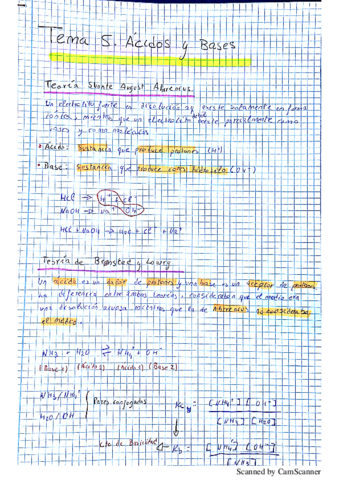 Tema 5. Ácidos y Bases
Teoría Svante August Arrhenius.
Un electrolito fuerte en disolución aq existe solamente en forma
iónica, mientras que un electrolito débil existe parcialmente como
iones y como moléculas
• Ácido: Sustancia que produce protones (H⁺)
• Base: Sustancia que produce iones hidróxido (OH⁻)
HCl → H⁺ + Cl⁻
NaOH → Na⁺ OH⁻
HCl + NaOH → H₂O + Cl⁻ + Na⁺
Teoría de Bronsted y Lowry
Un ácido es un dador de protones y una base es un aceptor de protones.
La diferencia entre ambas teorías, consideraban que el medio era
una disolución acuosa mientras que la de Arrhenius
el medio.
NH₃ + H₂O ⇌ NH₄⁺ + OH⁻
(Base 1) (Ácido 2) (Ácido 1) (Base 2)
NH₃/NH₄⁺
H₂O/OH⁻
Pares conjugados
Kc = [NH₄⁺] [OH⁻]
[NH₃] [H₂O]
Cte de Basicidad ← Kb = [NH₄⁺] [OH⁻]
[NH₃]
Scanned by CamScanner